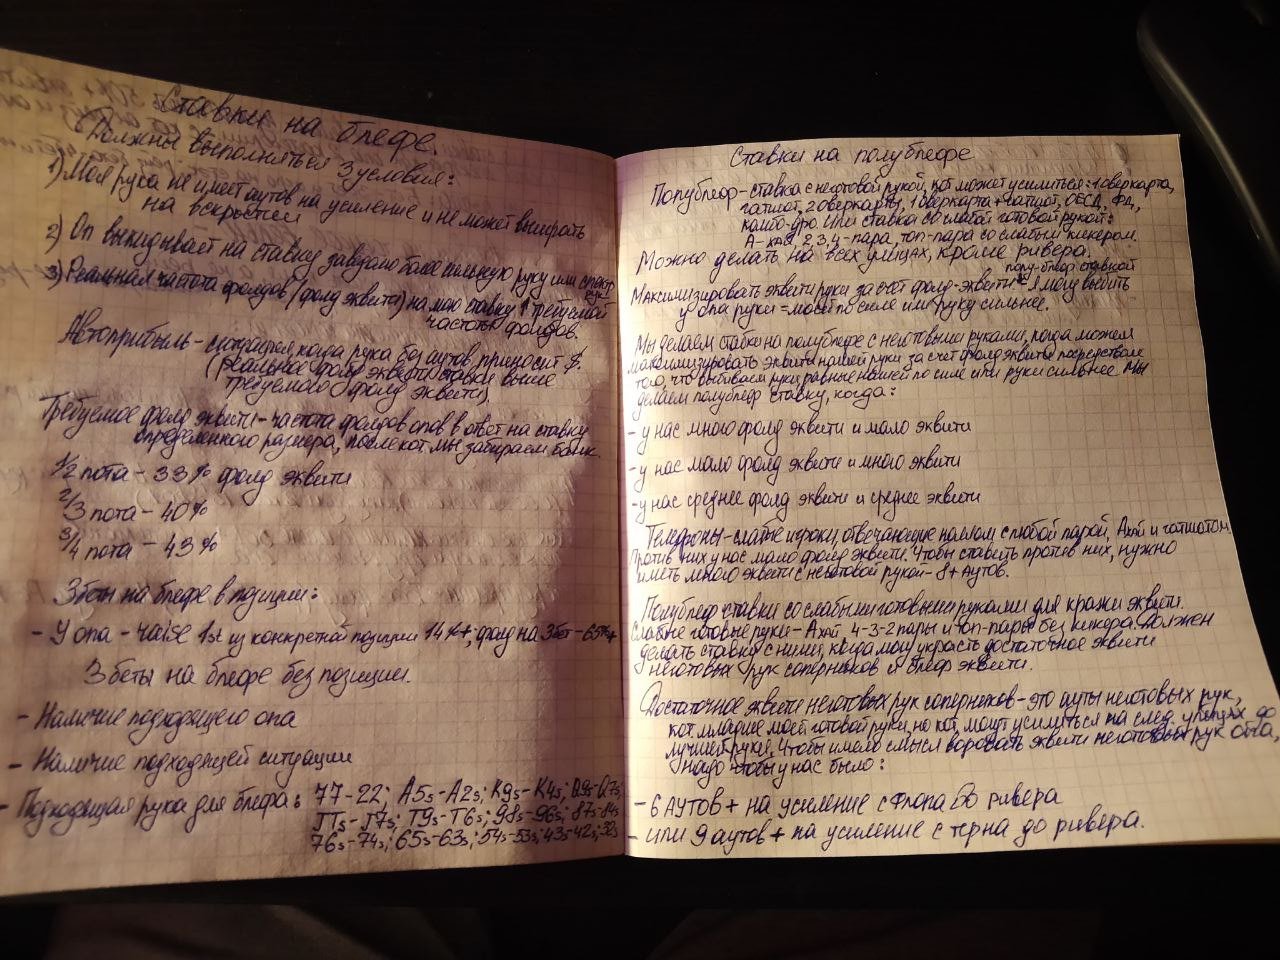 Ставки на блефе.
Должны выполняться 3 условия:
1) Моя рука не имеет аутов на усиление и не может выиграть
на вскрытии
2) Оп выкидывает на ставку заведомо более сильную руку или спектр
рук
3) Реальная частота фолдов (фолд эквити) на мою ставку требуемой
частоты фолдов.
Автоприбыль - ситуация, когда рука без аутов, приносит $.
(реальное фолд эквити ставки выше
требуемого фолд эквити).
Требуемое фолд эквити - частота фолдов опов в ответ на ставку
определенного размера, после кот. мы забираем банк.
1/2 пота - 33% фолд эквити
2/3 пота - 40%
3/4 пота - 43%
3беты на блефе в позиции:
- У опа - raise 1st из конкретной позиции 14%+, фолд на 3бет - 65%+
3беты на блефе без позиции.
- Наличие подходящего опа
- Наличие подходящей ситуации
- Подходящая рука для блефа: 77-22; A5s-A2s; K9s-K4s; Q9s-Q7s;
JTs-J7s; T9s-T6s; 98s-96s; 87s-84s
76s-74s; 65s-63s; 54s-53s; 43s-42s; 32s
Ставки на полублефе
Полублеф - ставка с неготовой рукой, кот может усилиться: 1 оверкарта,
гатшот, 2 оверкарты, 1 оверкарта + гатшот, ОЕСД, ФД,
комбо-дро. Или ставка со слабой готовой рукой:
А-хай, 2,3,4-пара, топ-пара со слабым кикером.
Можно делать на всех улицах, кроме ривера.
полу-блеф ставкой
Максимизировать эквити руки за счет фолд-эквити я могу выбить
у опа руки = моей по силе или руку сильнее.
Мы делаем ставки на полублефе с неготовыми руками, когда можем
максимизировать эквити нашей руки за счет фолд эквити посредством
того, что выбиваем руки равные нашей по силе или руки сильнее. Мы
делаем полублеф ставку, когда:
- у нас много фолд эквити и мало эквити
- у нас мало фолд эквити и много эквити
- у нас среднее фолд эквити и среднее эквити
Телефоны - слабые игроки, отвечающие на с любой парой, Ахай и гатшотом.
Против них у нас мало фолд эквити. Чтобы ставить против них, нужно
иметь много эквити с неготовой рукой - 8+ аутов.
Полублеф ставки со слабыми готовыми руками для кражи эквити.
Слабые готовые руки - Ахай 4-3-2 пары и топ-пары без кикера. Должен
делать ставки с ними, когда могу украсть достаточное эквити
неготовых рук соперников и блеф эквити.
Достаточное эквити неготовых рук соперников - это ауты неготовых рук,
кот младше моей готовой руки, но кот могут усилиться на след. улицах до
лучшей руки. Чтобы имело смысл воровать эквити неготовых рук опа,
надо чтобы у нас было:
- 6 аутов + на усиление с флопа до ривера
- или 9 аутов + на усиление с терна до ривера.